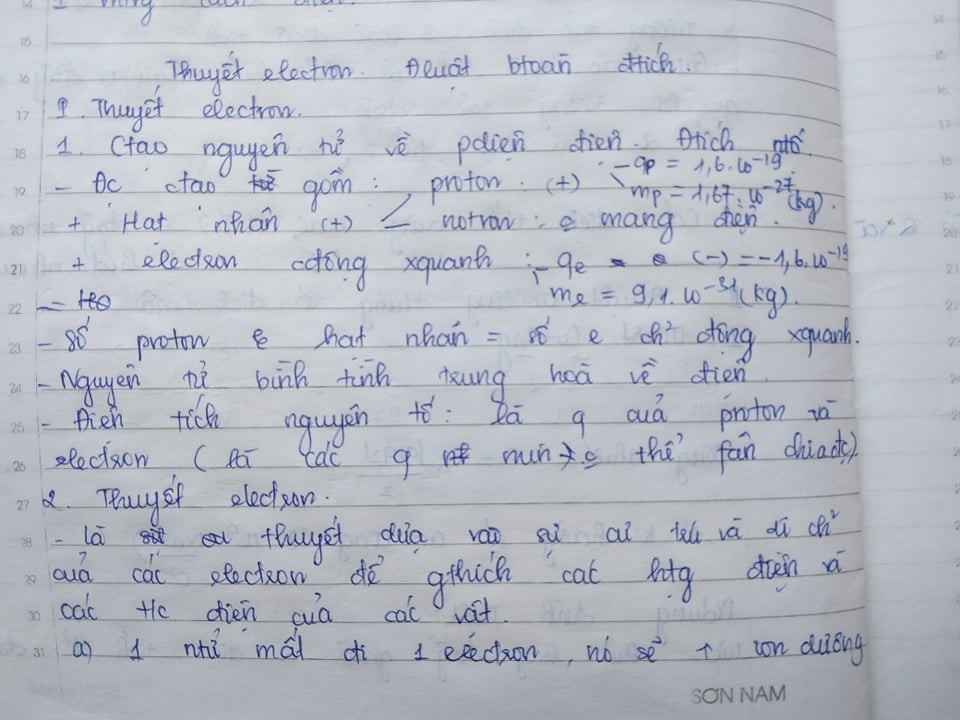 Thuyết electron. Đluật btoàn đtích.
I. Thuyết electron.
1. Ctạo nguyên tử về pdiện điện. Đtích ntố
- Đc ctạo gồm: proton: (+) - qp = 1,6.10⁻¹⁹
mp = 1,67.10⁻²⁷(kg).
+ Hạt nhân (+) < notron: mang điện.
+ electron cđộng xquanh: - qe (-) = -1,6.10⁻¹⁹
me = 9,1.10⁻³¹(kg).
- Số proton hạt nhân = số e ch² động xquanh.
- Nguyên tử bình tình trung hoà về điện
- Điện tích nguyên tố: là q của proton và
electron (là các q min → thể fân chia đc).
2. Thuyết electron.
- là thuyết dựa vào sự cư trú và di ch²
của các electron để gthích các htg điện và
các t/c điện của các vật.
a) 1 ntử mất đi 1 electron, nó sẽ ↑ ion dương
SƠN NAM